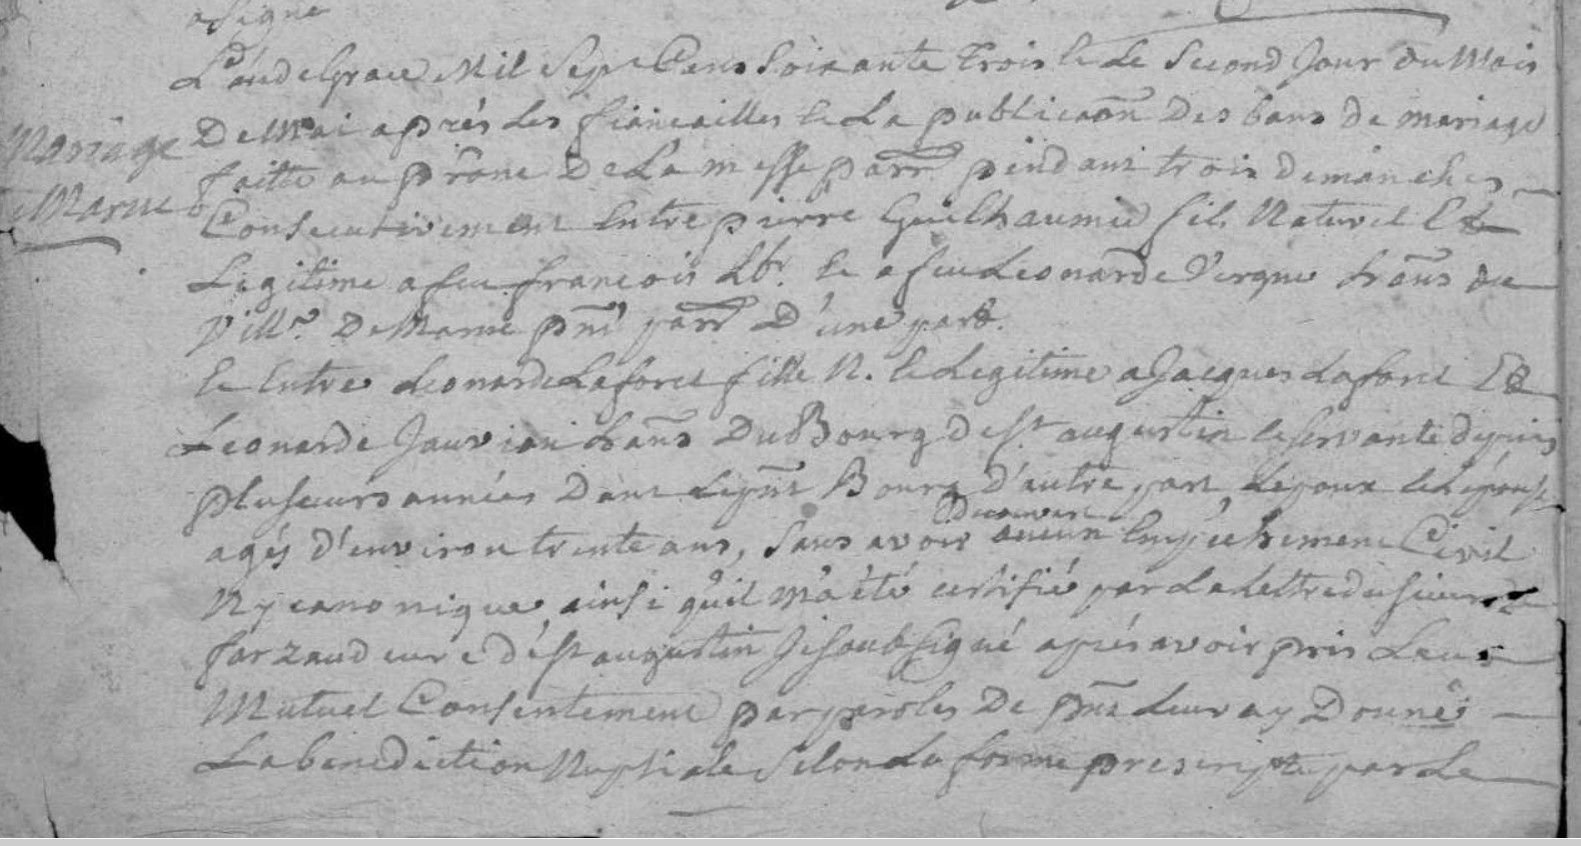 a signé
L'an de Grace Mil Sept Cens Soixante Trois & Le Second Jour du Mois
Mariage
De Mai après Les fiancailles & La publicaõn Des bans de mariage
faitte au prône De La messe parr. pendant trois dimanches
Marne
Consecutivement Entre pierre Guilhaumie fils Naturel Et
Legitime a feu francois Lbr. & a feu Leonarde Vergne hãns du
Vill.e De Marne pñt parr. D'une part.
Et Entre Leonarde Laforet fille N. & Legitime a Jacques Laforet Et
Leonarde Jauvion hãns Du Bourg de St augustin & servante depuis
plusieurs années Dans Le pñt Bourg D'autre part, L'epoux & L'épouse
Decouvert
agés d'environ trente ans, Sans avoir aucun Empéchement Civil
Ny canonique, ainsi qu'il m'a été certifié par La Lettre du sieur
farzaud curé de St augustin Je soubsigné aprés avoir pris Leur
Mutuel Consentement par paroles De pñt Leur ay Donné
La benediction Nuptiale Selon La forme prescripte par Le